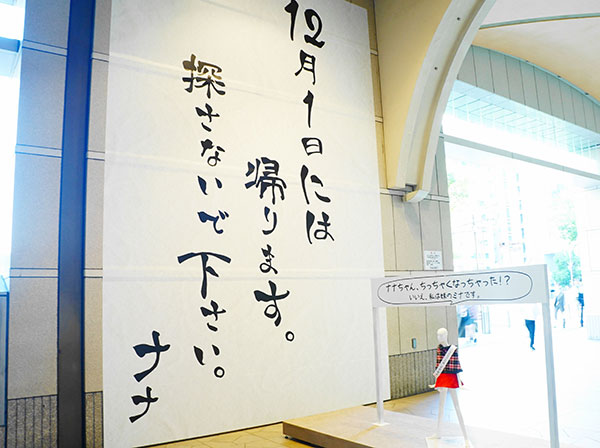 12月1日には
帰ります。
探さないで下さい。
ナナ
ナナちゃん、ちっちゃくなっちゃった!?
いいえ、私は妹のミナです。